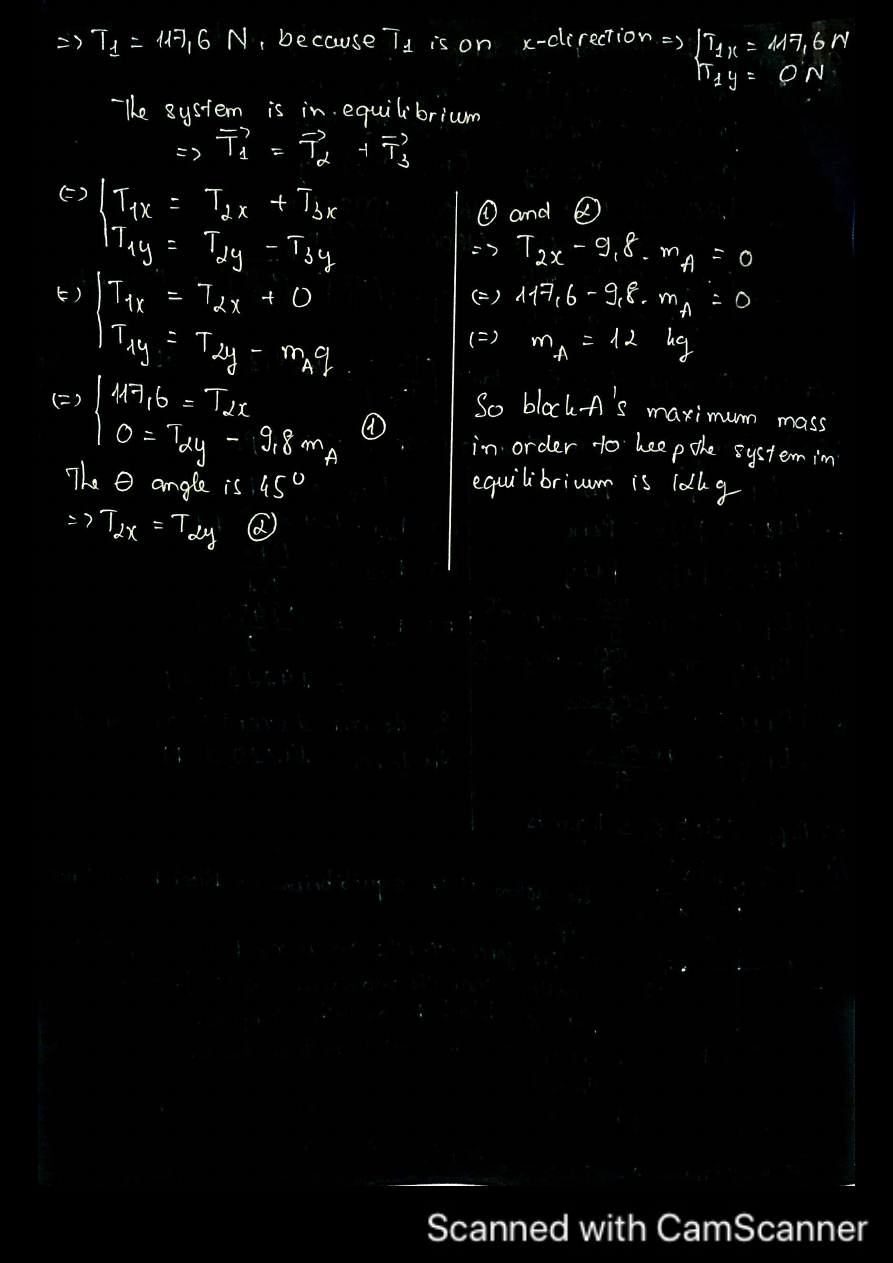 => T₁ = 117,6 N, because T₁ is on x-direction => { T₁ₓ = 117,6 N
T₁y = 0 N
The system is in equilibrium
=> T₁ = T₂ + T₃
(=) { T₁ₓ = T₂ₓ + T₃ₓ
T₁y = T₂y - T₃y
(=) { T₁ₓ = T₂ₓ + 0
T₁y = T₂y - m_A g
(=) { 117,6 = T₂ₓ
0 = T₂y - 9,8 m_A ①
The θ angle is 45°
=> T₂ₓ = T₂y ②
① and ②
=> T₂ₓ - 9,8. m_A = 0
(=) 117,6 - 9,8. m_A = 0
(=) m_A = 12 kg
So block A's maximum mass
in order to keep the system in
equilibrium is 12kg
Scanned with CamScanner